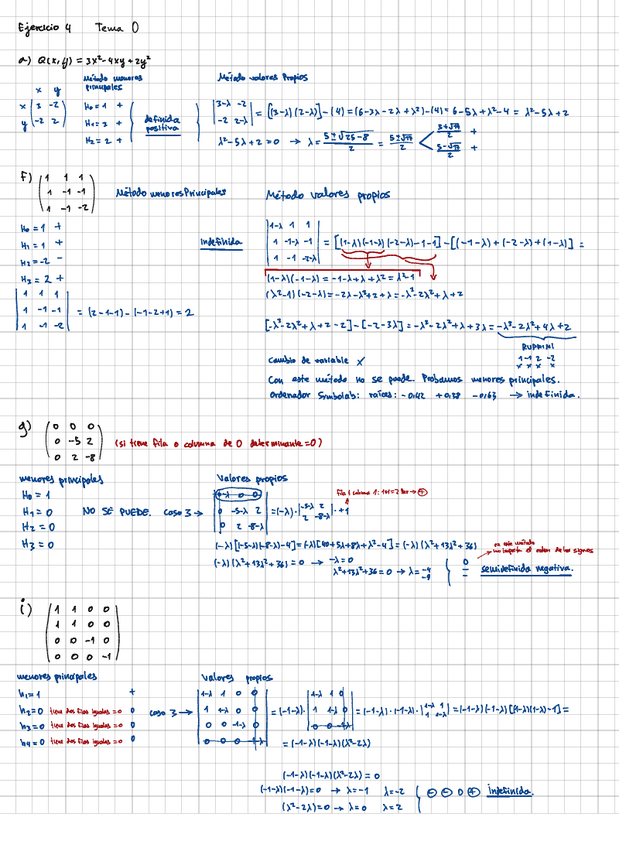 Ejercicio 4 Tema 0
a) Q(x,y) = 3x²-4xy+2y²
Método menores principales
x y
x | 3 -2 |
y | -2 2 |
H₀=1 +
H₁=3 +
H₂=2 +
definida positiva
Método valores Propios
| 3-λ -2 |
| -2 2-λ |
= [(3-λ)(2-λ)]-(4) = (6-3λ-2λ+λ²)-(4) = 6-5λ+λ²-4 = λ²-5λ+2
λ²-5λ+2=0 → λ = 5±√25-8 / 2 = 5±√17 / 2
5+√17 / 2 +
5-√17 / 2 +
f)
( 1 1 1 )
( 1 -1 -1 )
( 1 -1 -2 )
Método menores Principales
H₀=1 +
H₁=1 +
H₂=-2 -
H₃=2 +
indefinida
| 1 1 1 |
| 1 -1 -1 |
| 1 -1 -2 |
= (2-1-1)-(-1-2+1) = 2
Método valores propios
| 1-λ 1 1 |
| 1 -1-λ -1 |
| 1 -1 -2-λ |
= [(1-λ)(-1-λ)(-2-λ)-1-1]-[(-1-λ)+(-2-λ)+(1-λ)] =
(1-λ)(-1-λ) = -1-λ+λ+λ² = λ²-1
(λ²-1)(-2-λ) = -2λ-λ³+2+λ = -λ³-2λ²+λ+2
[-λ³-2λ²+λ+2-2]-[-2-3λ] = -λ³-2λ²+λ+3λ = -λ³-2λ²+4λ+2
RUFFINI
1 -1 2 -2
x x x x
Cambio de variable X
Con este método no se puede. Probamos menores principales.
Ordenador Symbolab: raíces:
→ indefinida.
g)
( 0 0 0 )
( 0 -5 2 )
( 0 2 -8 )
(si tiene fila o columna de 0 determinante=0)
menores principales
H₀ = 1
H₁ = 0
H₂ = 0
H₃ = 0
NO SE PUEDE. caso 3 →
Valores propios
| 0-λ 0 0 |
| 0 -5-λ 2 |
| 0 2 -8-λ |
= (-λ)·
| -5-λ 2 |
| 2 -8-λ |
·+1
fila 1 columna 1: 1+1=2 → +
(-λ)[(-5-λ)(-8-λ)-4] = (-λ)[40+5λ+8λ+λ²-4] = (-λ)(λ²+13λ+36)
(-λ)(λ²+13λ+36)=0 →
-λ=0
λ²+13λ+36=0 → λ = -4
-9
0
-
-
semidefinida negativa.
en este método
no importa el orden de los signos
i)
( 1 1 0 0 )
( 1 1 0 0 )
( 0 0 -1 0 )
( 0 0 0 -1 )
menores principales
h₁=1 +
h₂=0 tiene dos filas iguales=0 0
h₃=0 tiene dos filas iguales=0 0
h₄=0 tiene dos filas iguales=0 0
caso 3 →
Valores propios
| 1-λ 1 0 0 |
| 1 1-λ 0 0 |
| 0 0 -1-λ 0 |
| 0 0 0 -1-λ |
= (-1-λ)·
| 1-λ 1 0 |
| 1 1-λ 0 |
| 0 0 -1-λ |
= (-1-λ)·(-1-λ)·
| 1-λ 1 |
| 1 1-λ |
= (-1-λ)(-1-λ)[(1-λ)(1-λ)-1] =
= (-1-λ)(-1-λ)(λ²-2λ)
(-1-λ)(-1-λ)(λ²-2λ) = 0
(-1-λ)(-1-λ)=0 → λ=-1 λ=-2
(λ²-2λ)=0 → λ=0 λ=2
- - 0 + indefinida.